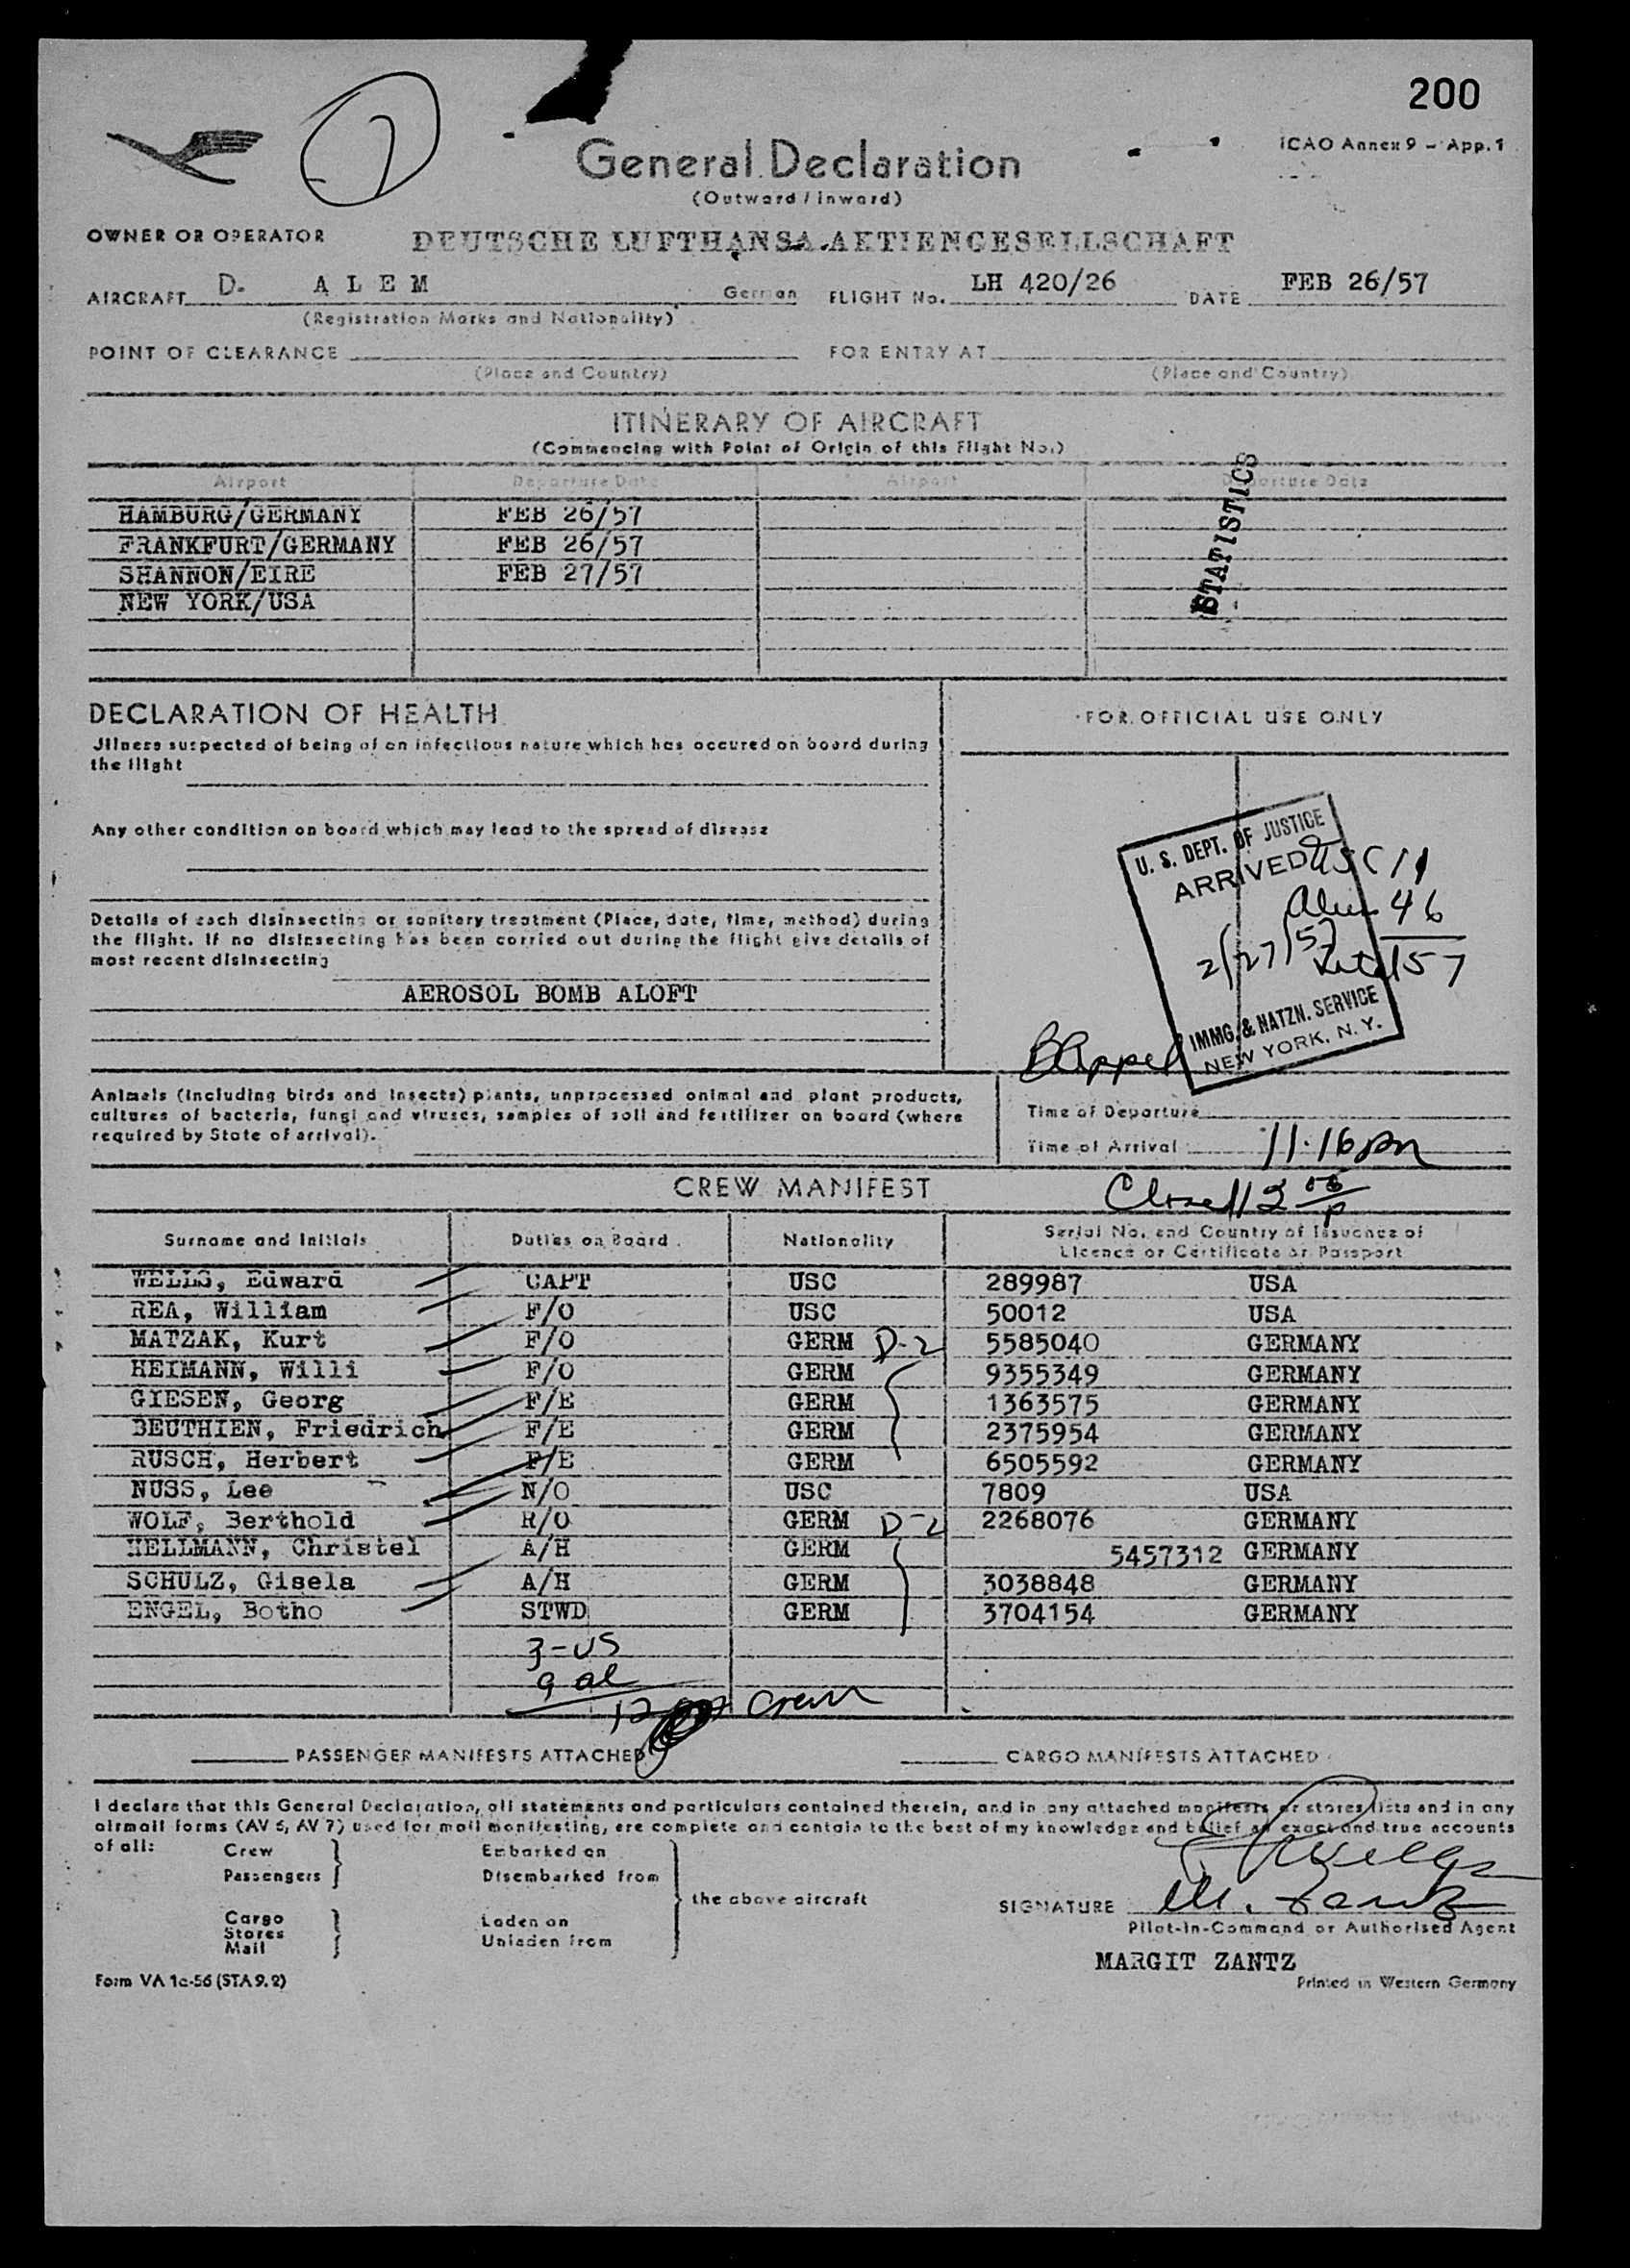 200
2
ICAO Annex 9 – App. 1
General Declaration
(Outward / Inward)
OWNER OR OPERATOR DEUTSCHE LUFTHANSA AKTIENGESELLSCHAFT
AIRCRAFT D- A L E M German FLIGHT No. LH 420/26 DATE FEB 26/57
(Registration Marks and Nationality)
POINT OF CLEARANCE FOR ENTRY AT
(Place and Country) (Place and Country)
ITINERARY OF AIRCRAFT
(Commencing with Point of Origin of this Flight No.)
Airport Departure Date Airport Departure Date
HAMBURG/GERMANY FEB 26/57
FRANKFURT/GERMANY FEB 26/57
SHANNON/EIRE FEB 27/57
NEW YORK/USA
STATISTICS
DECLARATION OF HEALTH
Jllness suspected of being of an infectious nature which has occured on board during
the flight
Any other condition on board which may lead to the spread of disease
Details of each disinsecting or sanitary treatment (Place, date, time, method) during
the flight. If no disinsecting has been carried out during the flight give details of
most recent disinsecting
AEROSOL BOMB ALOFT
FOR OFFICIAL USE ONLY
U. S. DEPT. OF JUSTICE
ARRIVED
USC 11
Alien 46
2/27/57
Total 57
IMMG. & NATZN. SERVICE
NEW YORK, N. Y.
B Appel
Animals (including birds and insects) plants, unprocessed animal and plant products,
cultures of bacteria, fungi and viruses, samples of soil and fertilizer on board (where
required by State of arrival).
Time of Departure
Time of Arrival 11.16 pm
CREW MANIFEST
Surname and Initials Duties on Board Nationality Serial No. and Country of Issuence of
Licence or Certificate or Passport
WELLS, Edward CAPT USC 289987 USA
REA, William F/O USC 50012 USA
MATZAK, Kurt F/O GERM D-2 5585040 GERMANY
HEIMANN, Willi F/O GERM 9355349 GERMANY
GIESEN, Georg F/E GERM 1363575 GERMANY
BEUTHIEN, Friedrich F/E GERM 2375954 GERMANY
RUSCH, Herbert F/E GERM 6505592 GERMANY
NUSS, Lee N/O USC 7809 USA
WOLF, Berthold R/O GERM D-2 2268076 GERMANY
HELLMANN, Christel A/H GERM 5457312 GERMANY
SCHULZ, Gisela A/H GERM 3038848 GERMANY
ENGEL, Botho STWD GERM 3704154 GERMANY
3-US
9 al
12 crew
PASSENGER MANIFESTS ATTACHED CARGO MANIFESTS ATTACHED
I declare that this General Declaration, all statements and particulars contained therein, and in any attached manifests or stores lists and in any
airmail forms (AV 6, AV 7) used for mail manifesting, are complete and contain to the best of my knowledge and belief an exact and true accounts
of all:
Crew
Passengers
Embarked on
Disembarked from
the above aircraft
Cargo
Stores
Mail
Laden on
Unladen from
SIGNATURE M. Zantz
Pilot-in-Command or Authorised Agent
MARGIT ZANTZ
Form VA 1c-56 (STA 9.2)
Printed in Western Germany